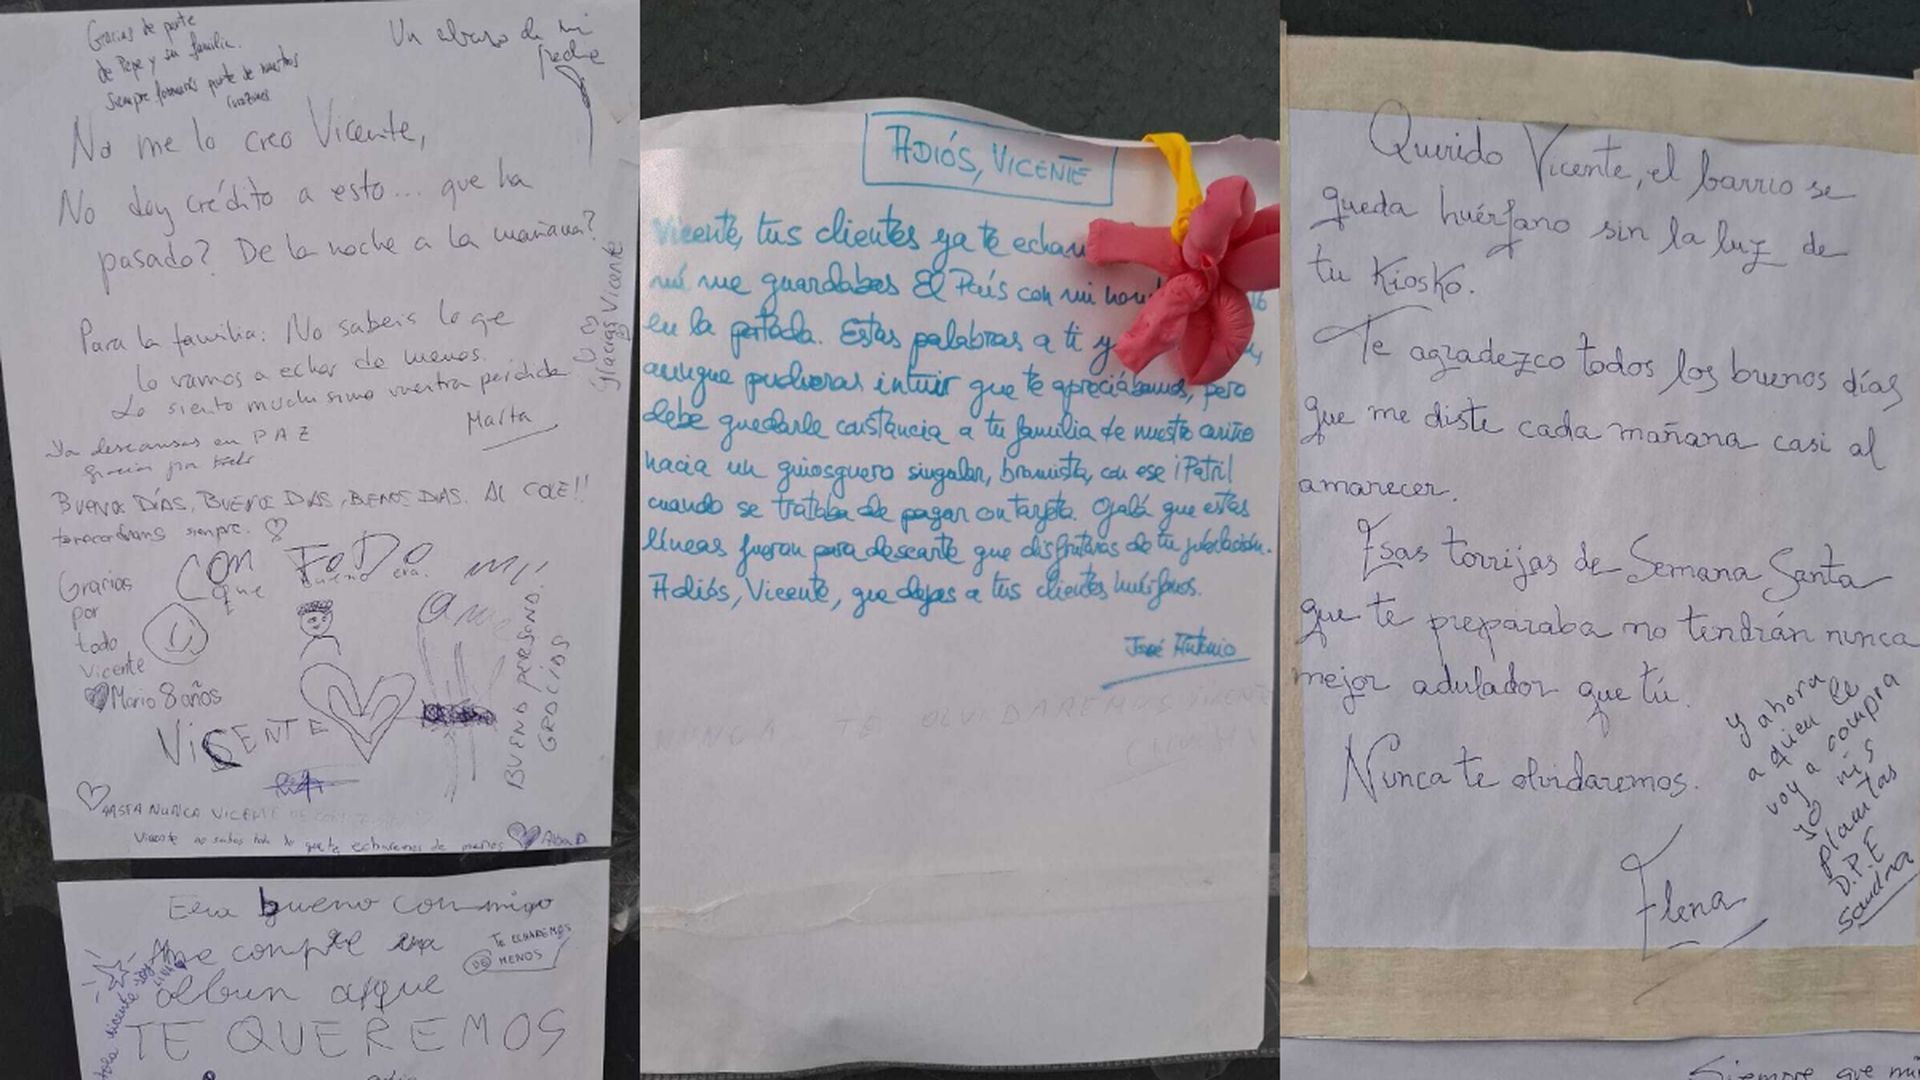 Gracias de parte
de Pepe y su familia.
Siempre formarás parte de nuestros
corazones
Un abrazo de mi
No me lo creo Vicente,
No doy crédito a esto... que ha
pasado? De la noche a la mañana?
Gracias Vicente
Para la familia: No sabeis lo que
lo vamos a echar de menos.
Lo siento muchisimo vuestra perdida
Marta
Ya descansas en PAZ
Gracias por todo
BUENOS DÍAS, BUENOS DIAS, BENOS DIAS. AL COLE!!
siempre.
CON TODO mi
que bueno era.
Gracias
por
todo
Vicente
Mario 8 años
BUENA PERSONA.
GRACIAS
VICENTE
HASTA NUNCA VICENTE
Vicente no sabes todo lo que te echaremos de menos
Era bueno conmigo
Me compre una
TE ECHAREMOS
DE MENOS
albun
TE QUEREMOS
ADIÓS, VICENTE
Vicente, tus clientes ya te echan
mí me guardabas El País con mi
en la portada. Estas palabras a ti y
aunque pudieras intuir que te apreciábamos, pero
debe quedarle constancia a tu familia de nuestro cariño
hacia un quiosquero singular, bromista, con ese ¡Patri!
cuando se trataba de pagar con tarjeta. Ojalá que estas
líneas fueran para desearte que disfrutaras de tu jubilación.
Adiós, Vicente, que dejas a tus clientes huérfanos.
José Antonio
NUNCA TE OLVIDAREMOS VICENTE
Querido Vicente, el barrio se
queda huérfano sin la luz de
tu Kiosko.
Te agradezco todos los buenos días
que me diste cada mañana casi al
amanecer.
Esas torrijas de Semana Santa
que te preparaba no tendrán nunca
mejor adulador que tú.
Nunca te olvidaremos.
Elena
y ahora
a quien le
voy a compra
yo mis
plantas
D.P.E
Sandra
Siempre que